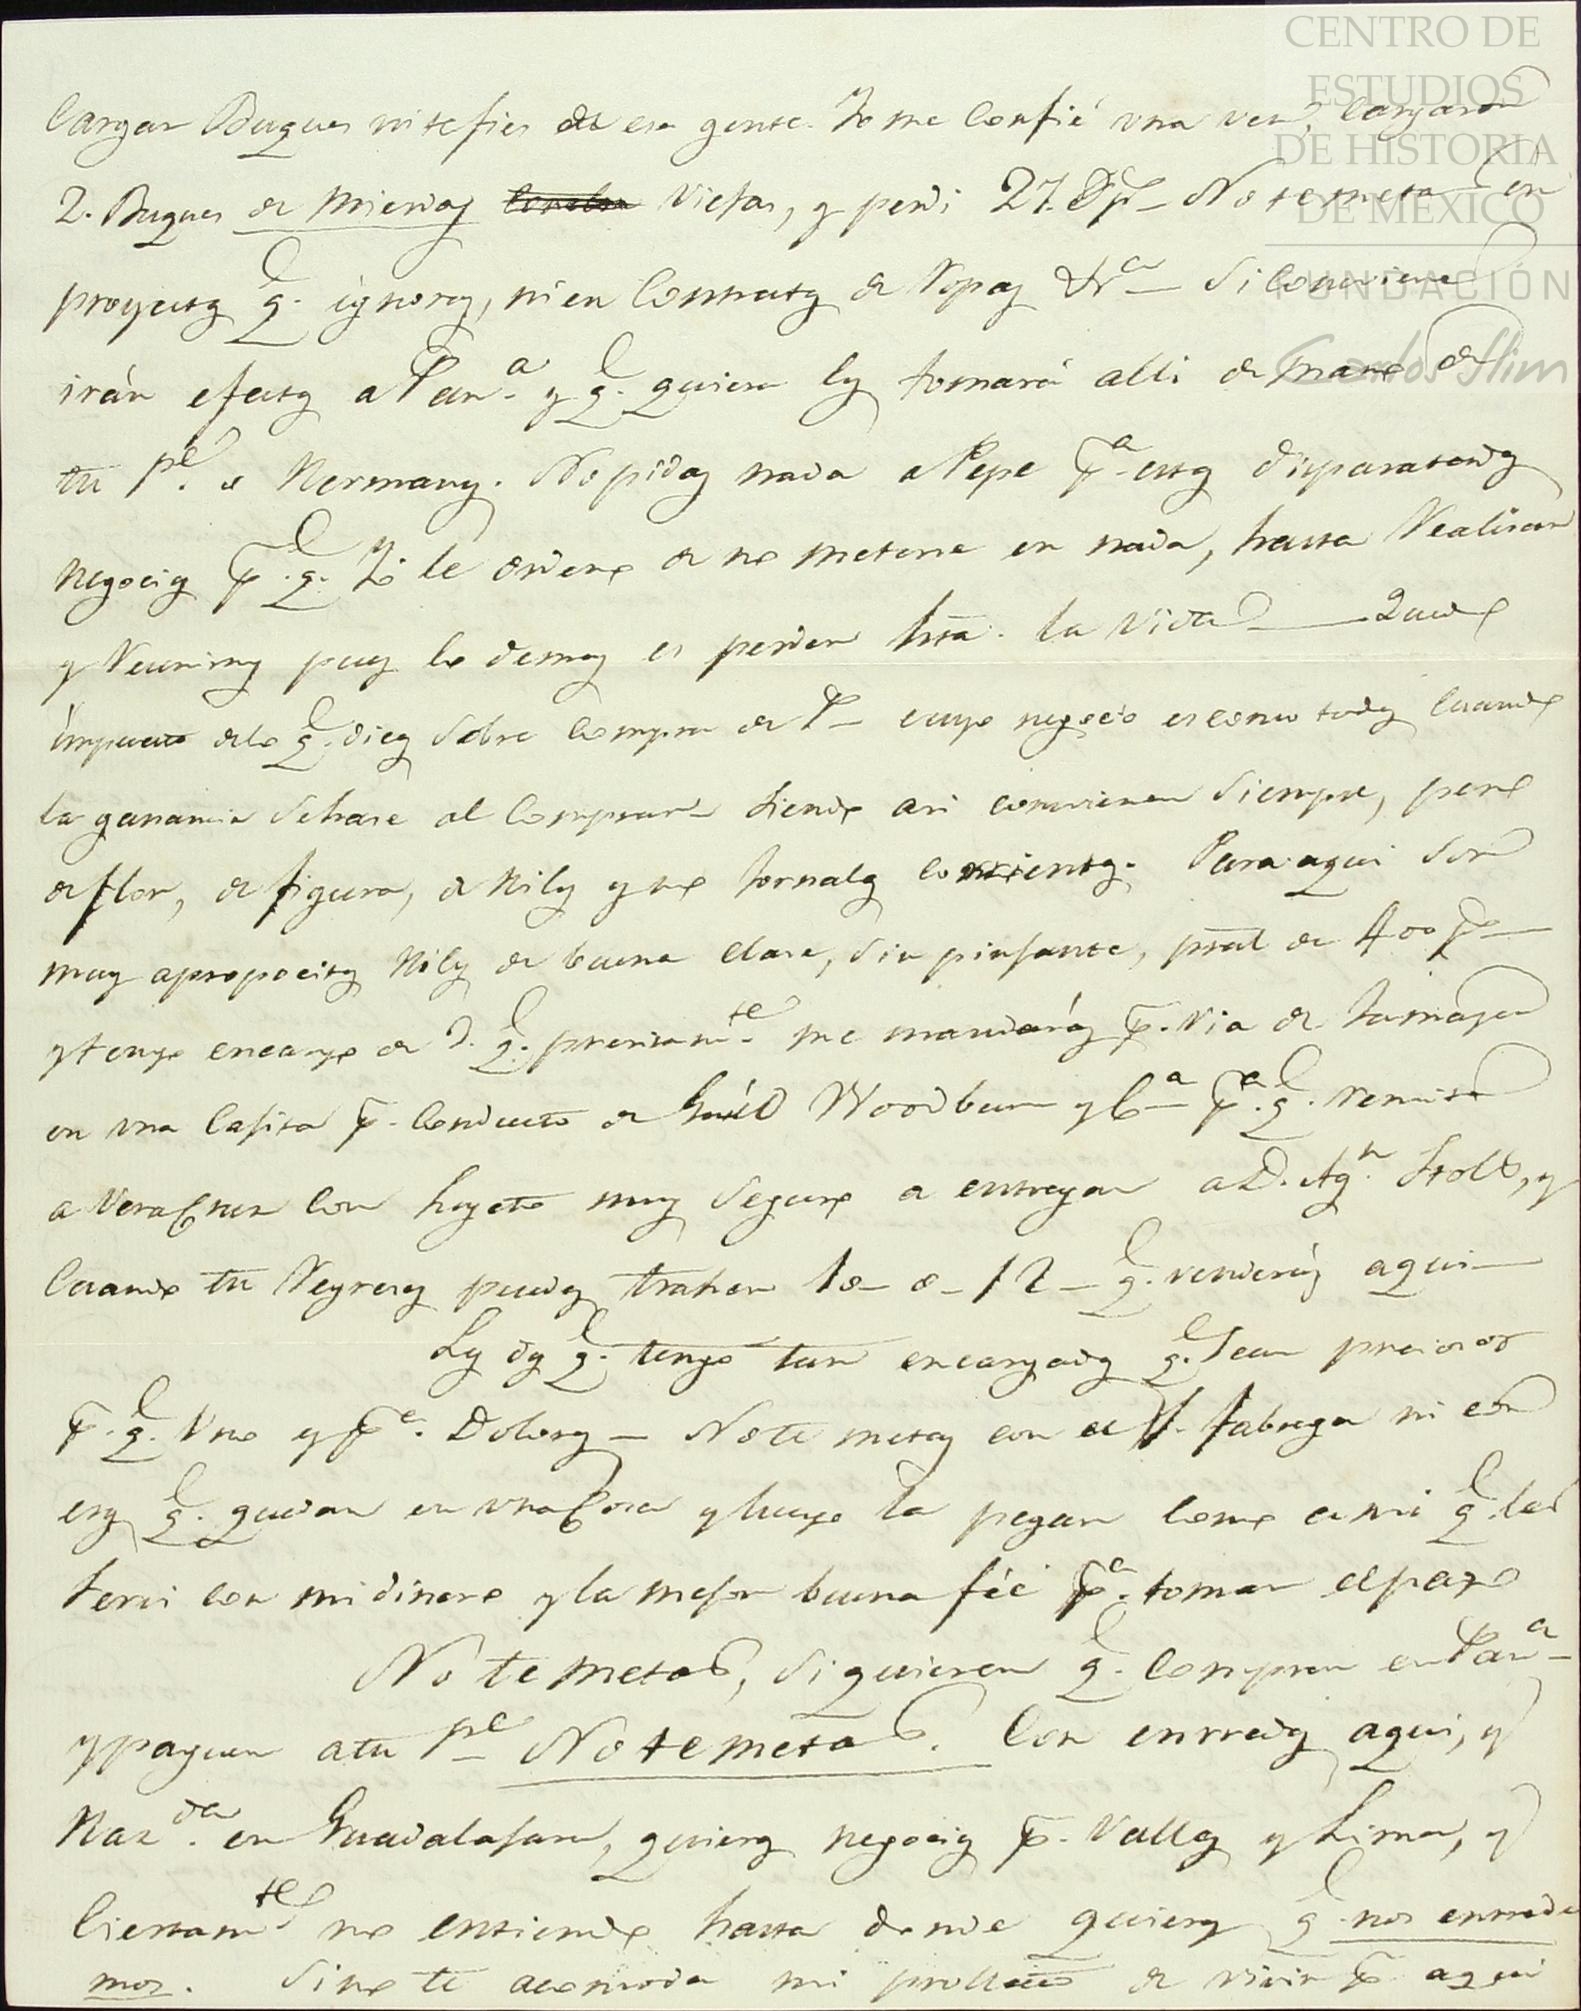 CENTRO DE
ESTUDIOS
DE HISTORIA
DE MÉXICO
FUNDACIÓN
Carlos Slim
Cargar Buques ni tefies de esa gente. Yo me confié una vez, cargaron
2. Buques de mierdas viejas, y perdi 27. Dps_ No te metas en
proyectos q.e ignoras, ni en Contratas de Ropas &ra_ Si conviene
irán efectos a Pan.a y q.e quiera los tomará alli de mano de
tu P.e o Hermanos. No pidas nada a Pepe p.a estos disparatados
negocios p.r q.e Yo le ordeno de no meterse en nada, hasta Realisar
y Reunirnos pues lo demas es perder hta. la vida ___ Quedo
impuesto de lo q.e dices sobre compra de P_ cuyo negocio es como todos cuando
la ganancia se hase al comprar_ siendo asi convienen siempre, pero
de flor, de figura, de hilos y no hornales corrientes. Para aqui son
muy aproposito hilos de buena clase, sin pinjante, pral de 400 ps_
y tengo encargo de 2. q.e presisam.te me mandarás p.r via de Jamayca
en una Cajita p.r Conducto de Woodburn y C.a p.a q.e remita
a VeraCruz con sugeto muy seguro a entregar a D. Ag.n Stolt, y
cuando tu Regreses puedes traher 10_ o_ 12_ q.e venderás aqui_
Los dos q.e tengo tan encargados q.e sean presiosos
p.r q.e Uno es p.a Dolores_ No te metas con el S. Fabrega ni con
esos q.e quedan en una Cosa y luego la pegan como a mi q.e les
servi con mi dinero y la mejor buena feé p.a tomar el pago
No te metas, si quieren q.e compren en Pan.a
y paguen a tu P.e No te metas. Con enrredos aqui, y
Haz.da en Guadalajara, quieres negocios p.r Valles y Lima, y
Ciertam.te no entiendo hasta donde quieres q.e nos enrrede
mos. Si no te acomoda mi proyecto de vivir p.r aqui